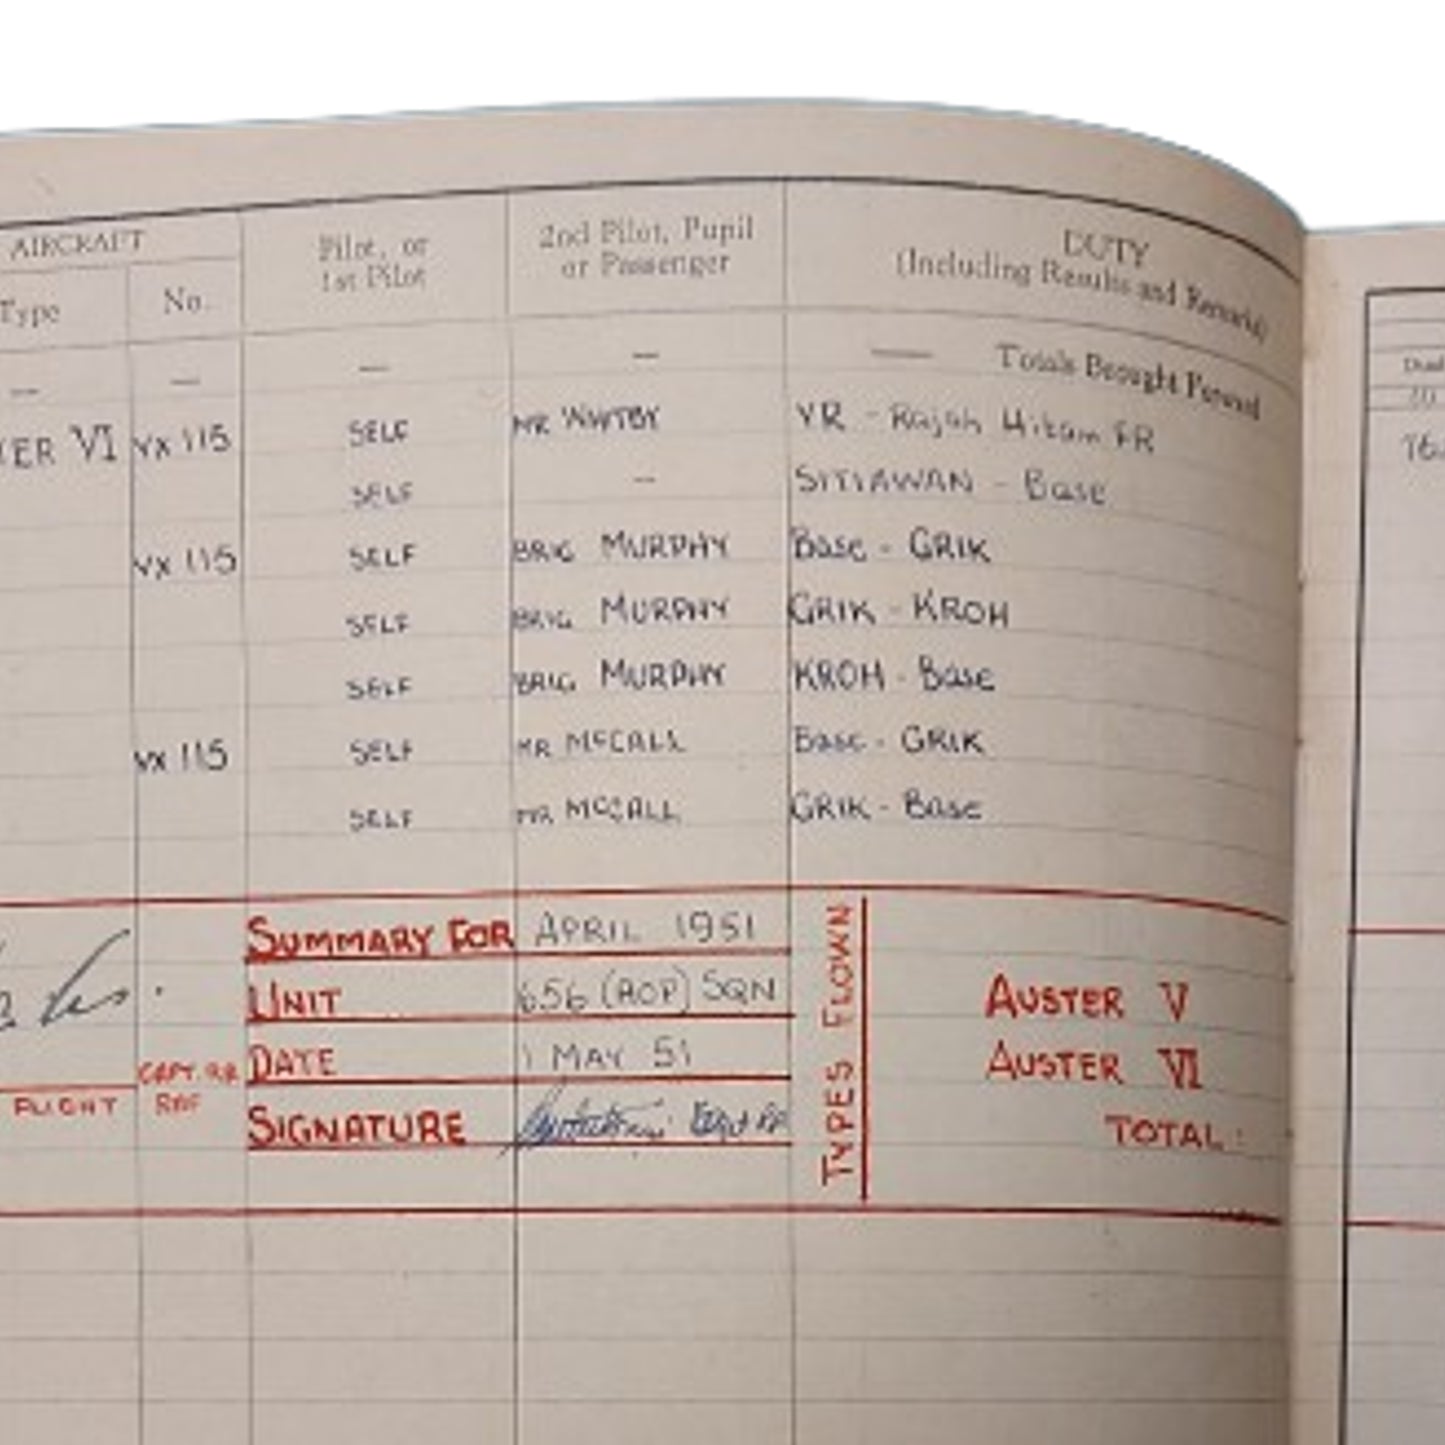 AIRCRAFT Pilot, or 1st Pilot 2nd Pilot, Pupil or Passenger DUTY (Including Results and Remarks)
Type No.
— — — — — Totals Brought Forward
TER VI VX 115 SELF MR WHITBY VR - Rajah Hitam FR
SELF — SITIAWAN - Base
VX 115 SELF BRIG MURPHY Base - GRIK
SELF BRIG MURPHY GRIK - KROH
SELF BRIG MURPHY KROH - Base
VX 115 SELF MR McCALL Base - GRIK
SELF MR McCALL GRIK - Base
SUMMARY FOR APRIL 1951
UNIT 656 (AOP) SQN
DATE 1 MAY 51
SIGNATURE
CAPT. RA
FLIGHT
TYPES FLOWN
AUSTER V
AUSTER VI
TOTAL: